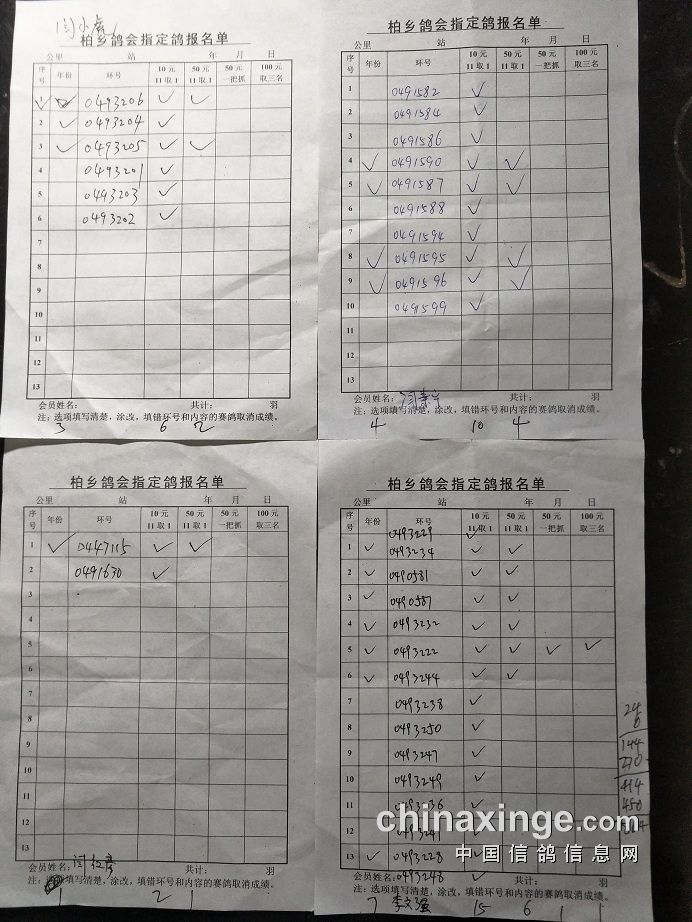 闫小彦
柏乡鸽会指定鸽报名单
公里 站 年 月 日
序号 年份 环号 10元11取1 50元11取1 50元一把抓 100元取三名
1 ✓ 0493206 ✓ ✓
2 ✓ 0493204 ✓
3 ✓ 0493205 ✓ ✓
4 0493201 ✓
5 0493203 ✓
6 0493202 ✓
7
8
9
10
11
12
13
会员姓名: 共计: 羽
注:选项填写清楚,涂改,填错环号和内容的赛鸽取消成绩。
3 6 2
柏乡鸽会指定鸽报名单
公里 站 年 月 日
序号 年份 环号 10元11取1 50元11取1 50元一把抓 100元取三名
1 0491582 ✓
2 0491584 ✓
3 0491586 ✓
4 ✓ 0491590 ✓ ✓
5 ✓ 0491587 ✓ ✓
6 0491588 ✓
7 0491594 ✓
8 ✓ 0491595 ✓ ✓
9 ✓ 0491596 ✓ ✓
10 0491599 ✓
11
12
13
会员姓名: 共计: 羽
注:选项填写清楚,涂改,填错环号和内容的赛鸽取消成绩。
4 10 4
柏乡鸽会指定鸽报名单
公里 站 年 月 日
序号 年份 环号 10元11取1 50元11取1 50元一把抓 100元取三名
1 ✓ 0447115 ✓ ✓
2 0491630 ✓
3
4
5
6
7
8
9
10
11
12
13
会员姓名: 闫红彦 共计: 羽
注:选项填写清楚,涂改,填错环号和内容的赛鸽取消成绩。
1 2 1
柏乡鸽会指定鸽报名单
公里 站 年 月 日
序号 年份 环号 10元11取1 50元11取1 50元一把抓 100元取三名
0493229 ✓
1 ✓ 0493234 ✓ ✓
2 ✓ 0490581 ✓ ✓
3 ✓ 0490587 ✓ ✓
4 ✓ 0493232 ✓ ✓
5 ✓ 0493222 ✓ ✓ ✓ ✓
6 ✓ 0493244 ✓ ✓
7 0493238 ✓
8 0493250 ✓
9 0493247 ✓
10 0493249 ✓
11 0493236 ✓
12 0493241 ✓
13 ✓ 0493228 ✓
会员姓名: 0493248 共计: 羽
注:选项填写清楚,涂改,填错环号和内容的赛鸽取消成绩。
7 李文强 15 6 1 1
24
6
144
270
414
450
chinaxinge.com
中国信鸽信息网